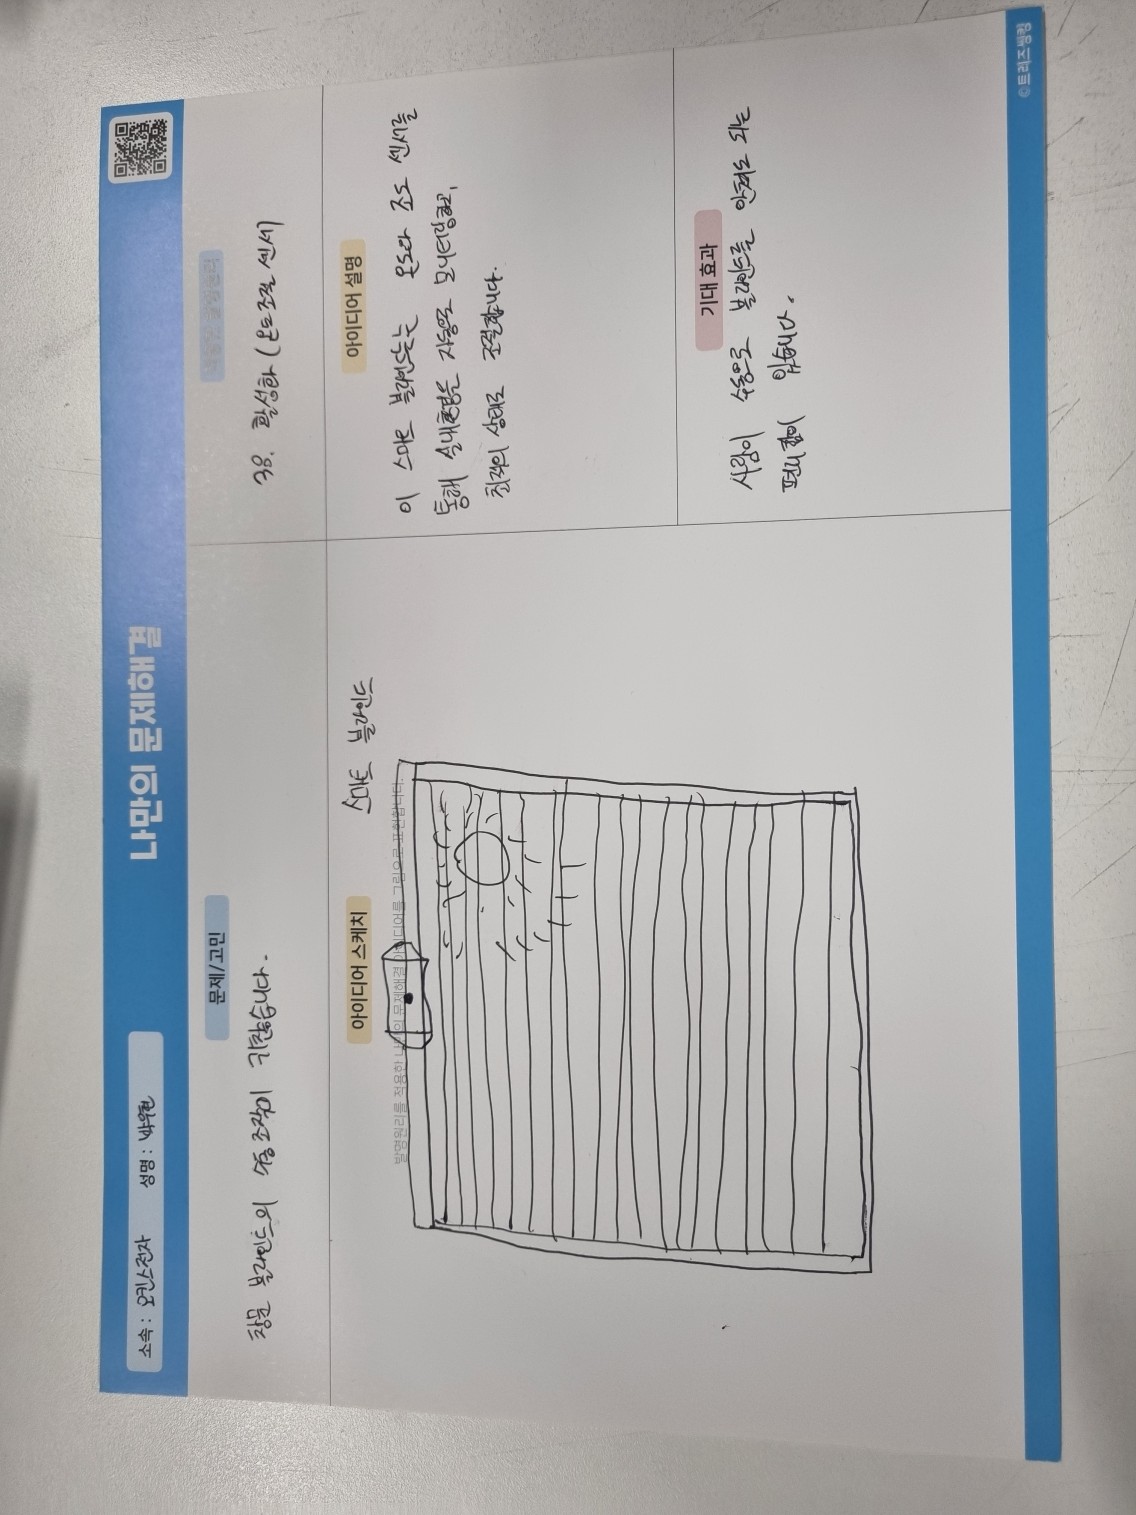 나만의 문제해결
소속 : 오킨스전자 성명 : 박우현
문제/고민
창문 블라인드의 수동조작이 귀찮습니다.
38. 활성화 (온도조절 센서)
아이디어 스케치
발명원리를 적용한 나만의 문제해결 아이디어를 그림으로 표현합니다.
스마트 블라인드
아이디어 설명
이 스마트 블라인드는 온도와 조도 센서를
통해 실내환경을 자동으로 모니터링하고,
최적의 상태로 조절합니다.
기대 효과
사람이 수동으로 블라인드를 안쳐도 되는
편리함이 있습니다.
©트리즈씽킹